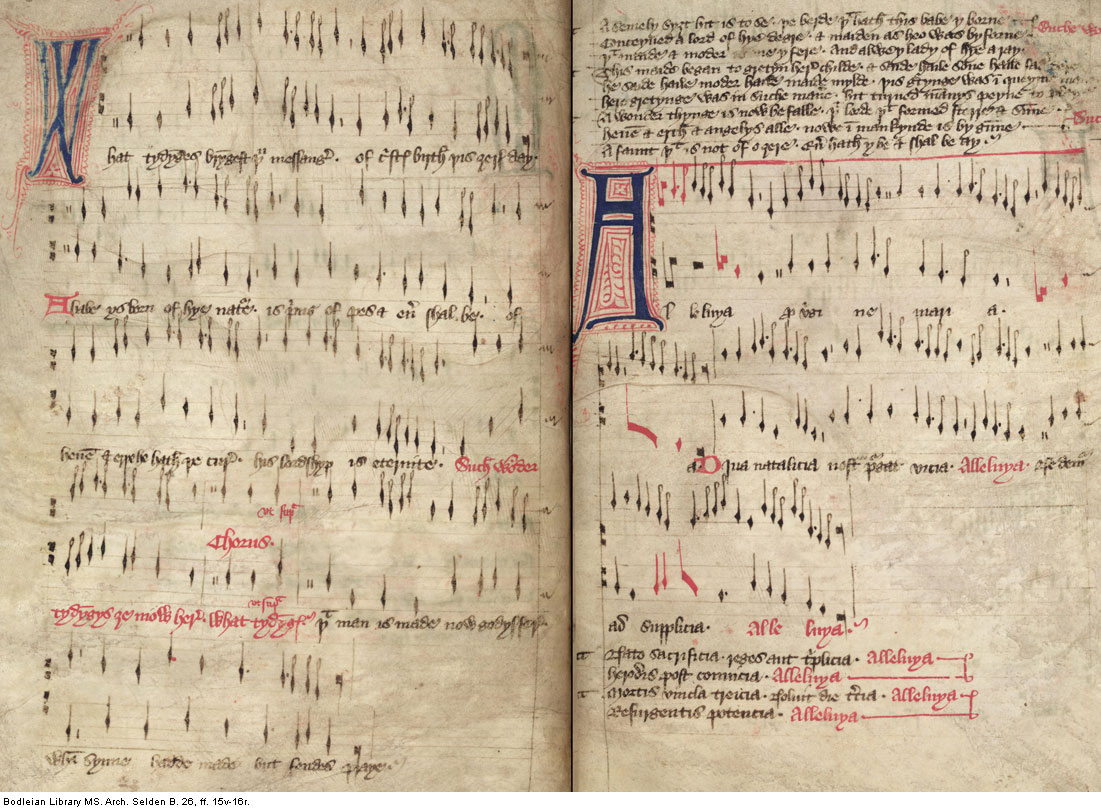 hat tydyges bryngest þu messanger . of cristes birth þis ȝeris day .
A babe ys born of hye nature . is prins of pes & eu shal be . of
heuen & erþe he hath þe cure . his lordshyp is eternite . Such wonder
ut supra
Chorus .
tydyngys ȝe mow here . What tydyngs ut supra þat man is made now godys fere
Whom synne hadde made but fendes praye .
A semely syȝt hit is to se . þe berde þat hath this babe y borne Suche wo
conceyued a lord of hye degre . & maiden as heo was by forne
þat maide & moder y fere . And alwey lady of hye aray .
This maide began to gretyn here childe . & saide haile sone haile fa dere
he saide haile moder haile maide mylde . þis gretynge was in queynt manere
here gretynge was in suche manere . hit turned mannys peyne to pl
A wonder thynge is now be falle . þat lorde þat formed sterre & sunne Suc
heuen & erth & angelys alle . nowe in mankynde is by gunne
A faunt þat is not of o ȝere . euer hath y be & shal be ay .
A l leluya A vir ne mari a .
a Diua natalicia nostra purgat vicia . Alleluya . ne demur
ad supplicia . Alle luya .
Rfato sacrificia . reges dant triplicia . Alleluya
herodis post conuicia . Alleluya
Mortis vincla treicia . soluit die tercia . Alleluya
Resurgentis potencia . Alleluya
Bodleian Library MS. Arch. Selden B. 26, ff. 15v-16r.